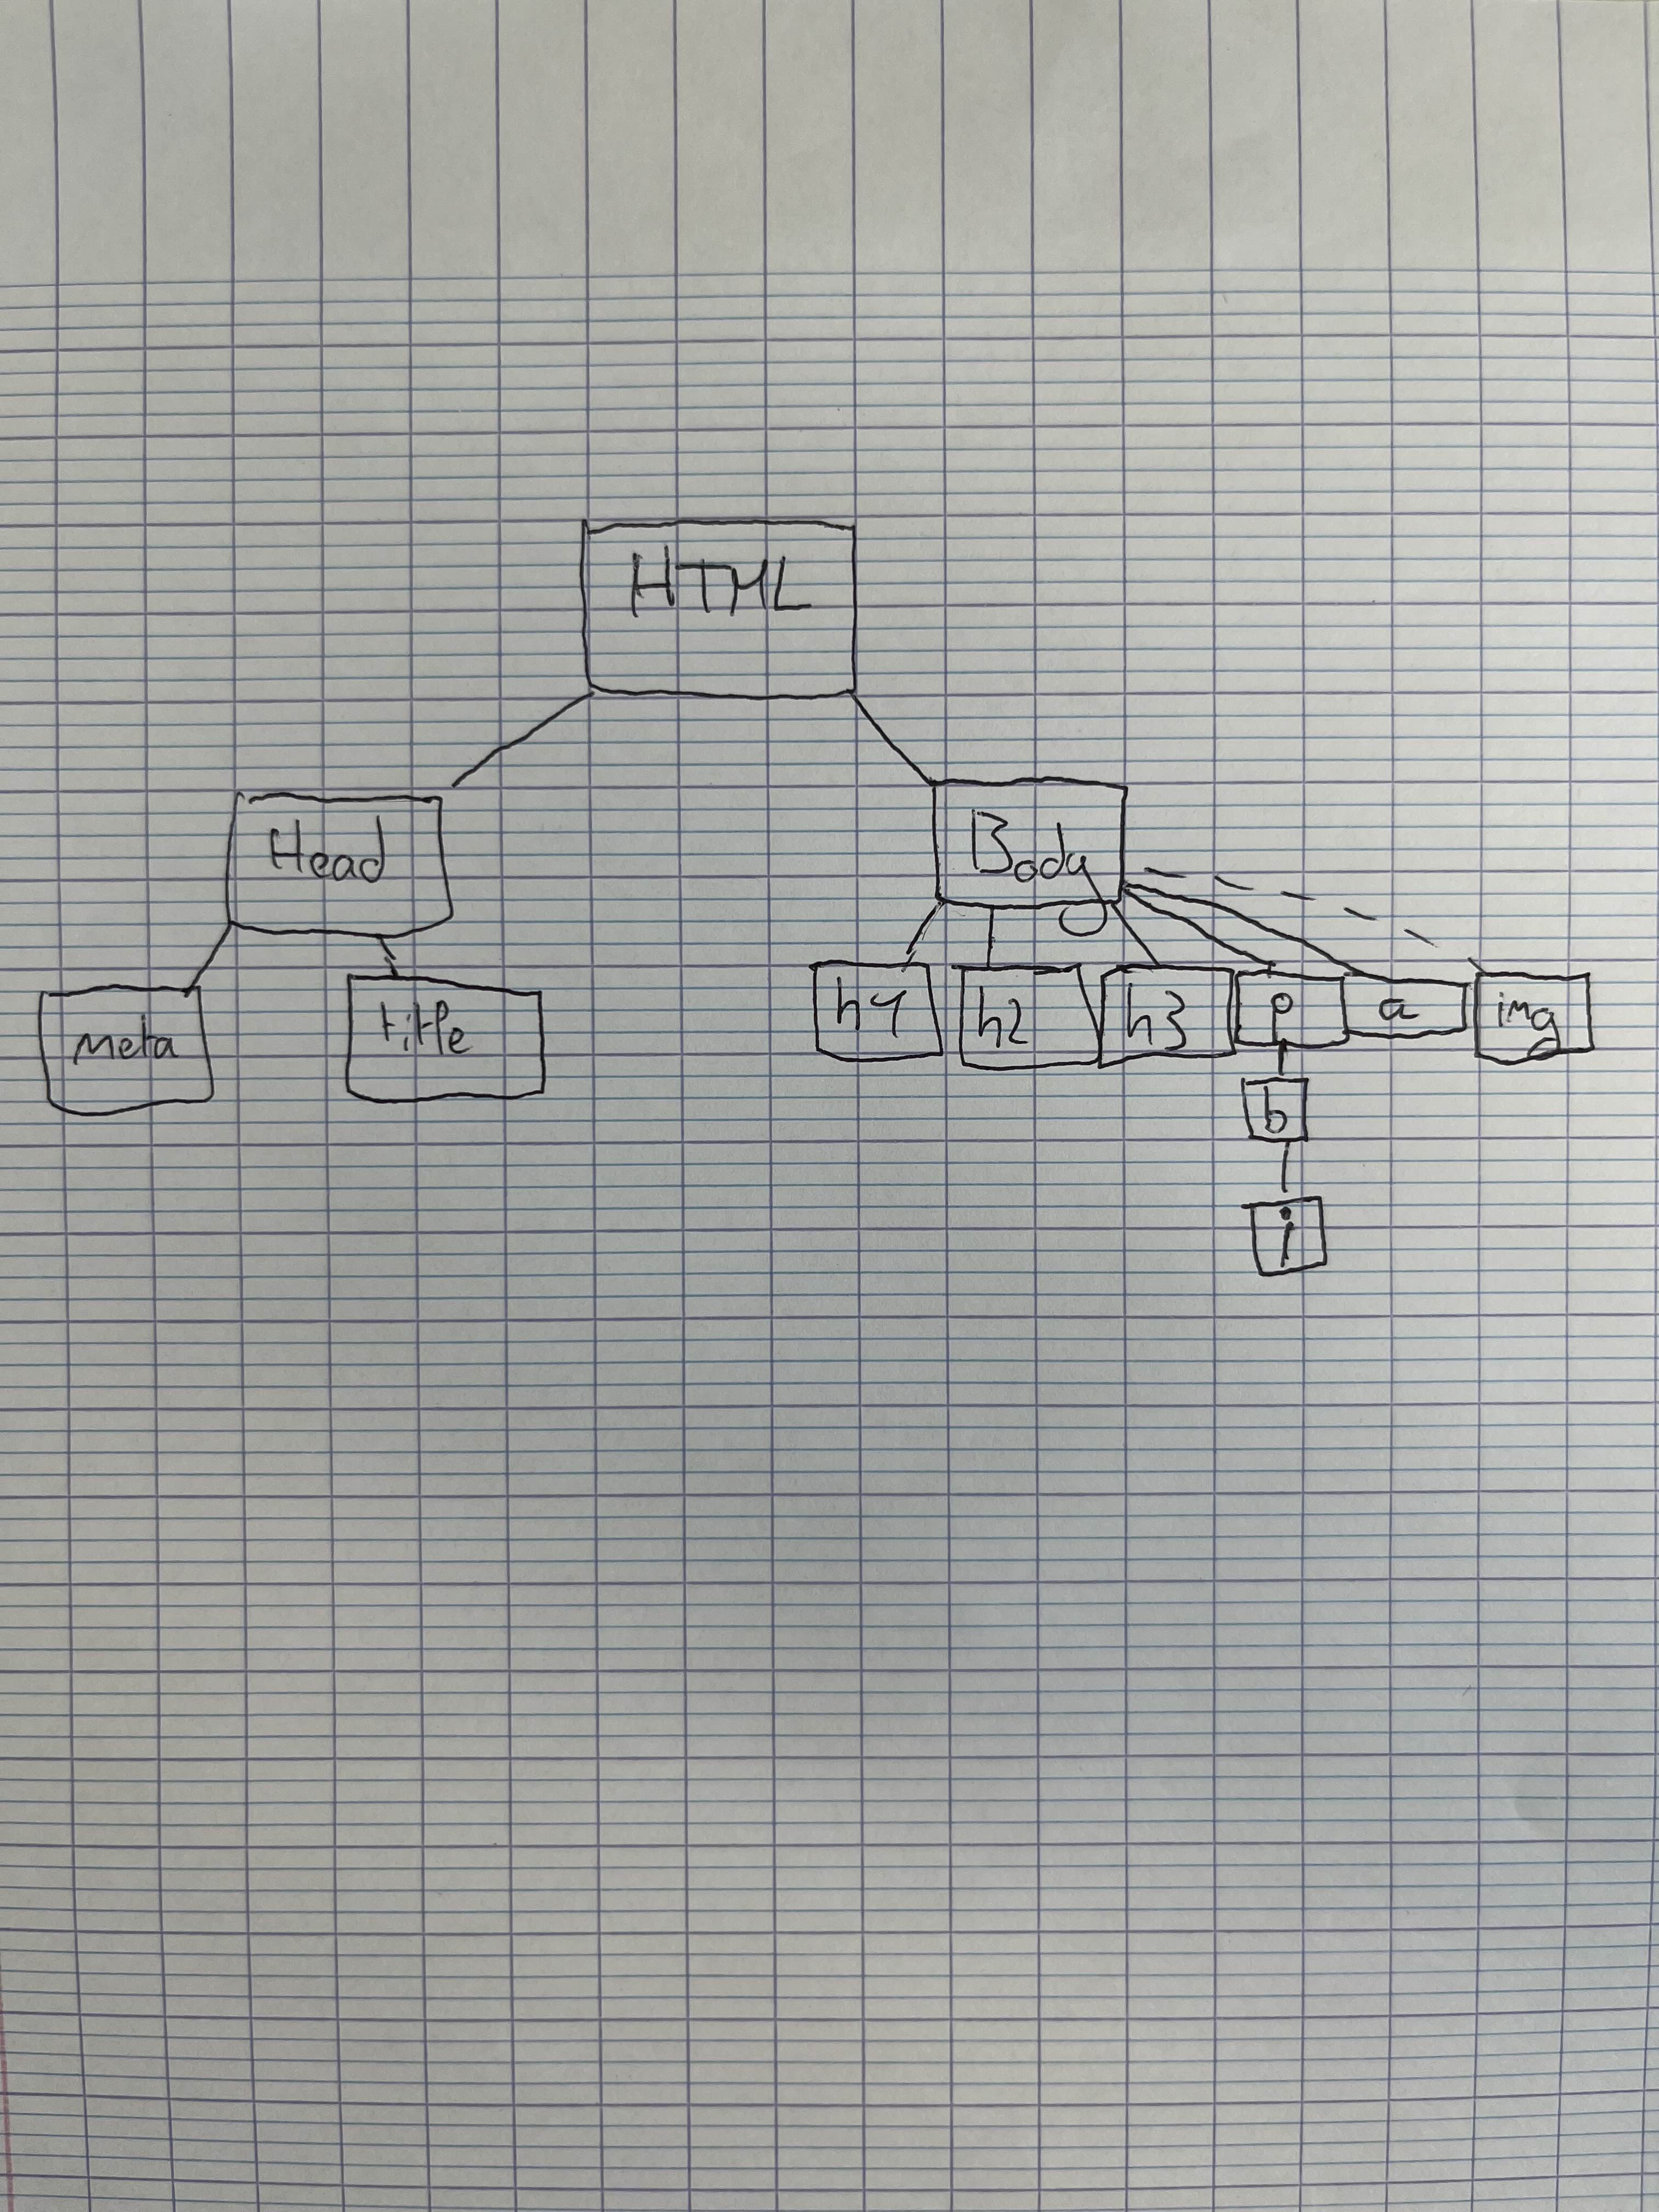 HTML
Head Body
meta title h1 h2 h3 p a img
b
i